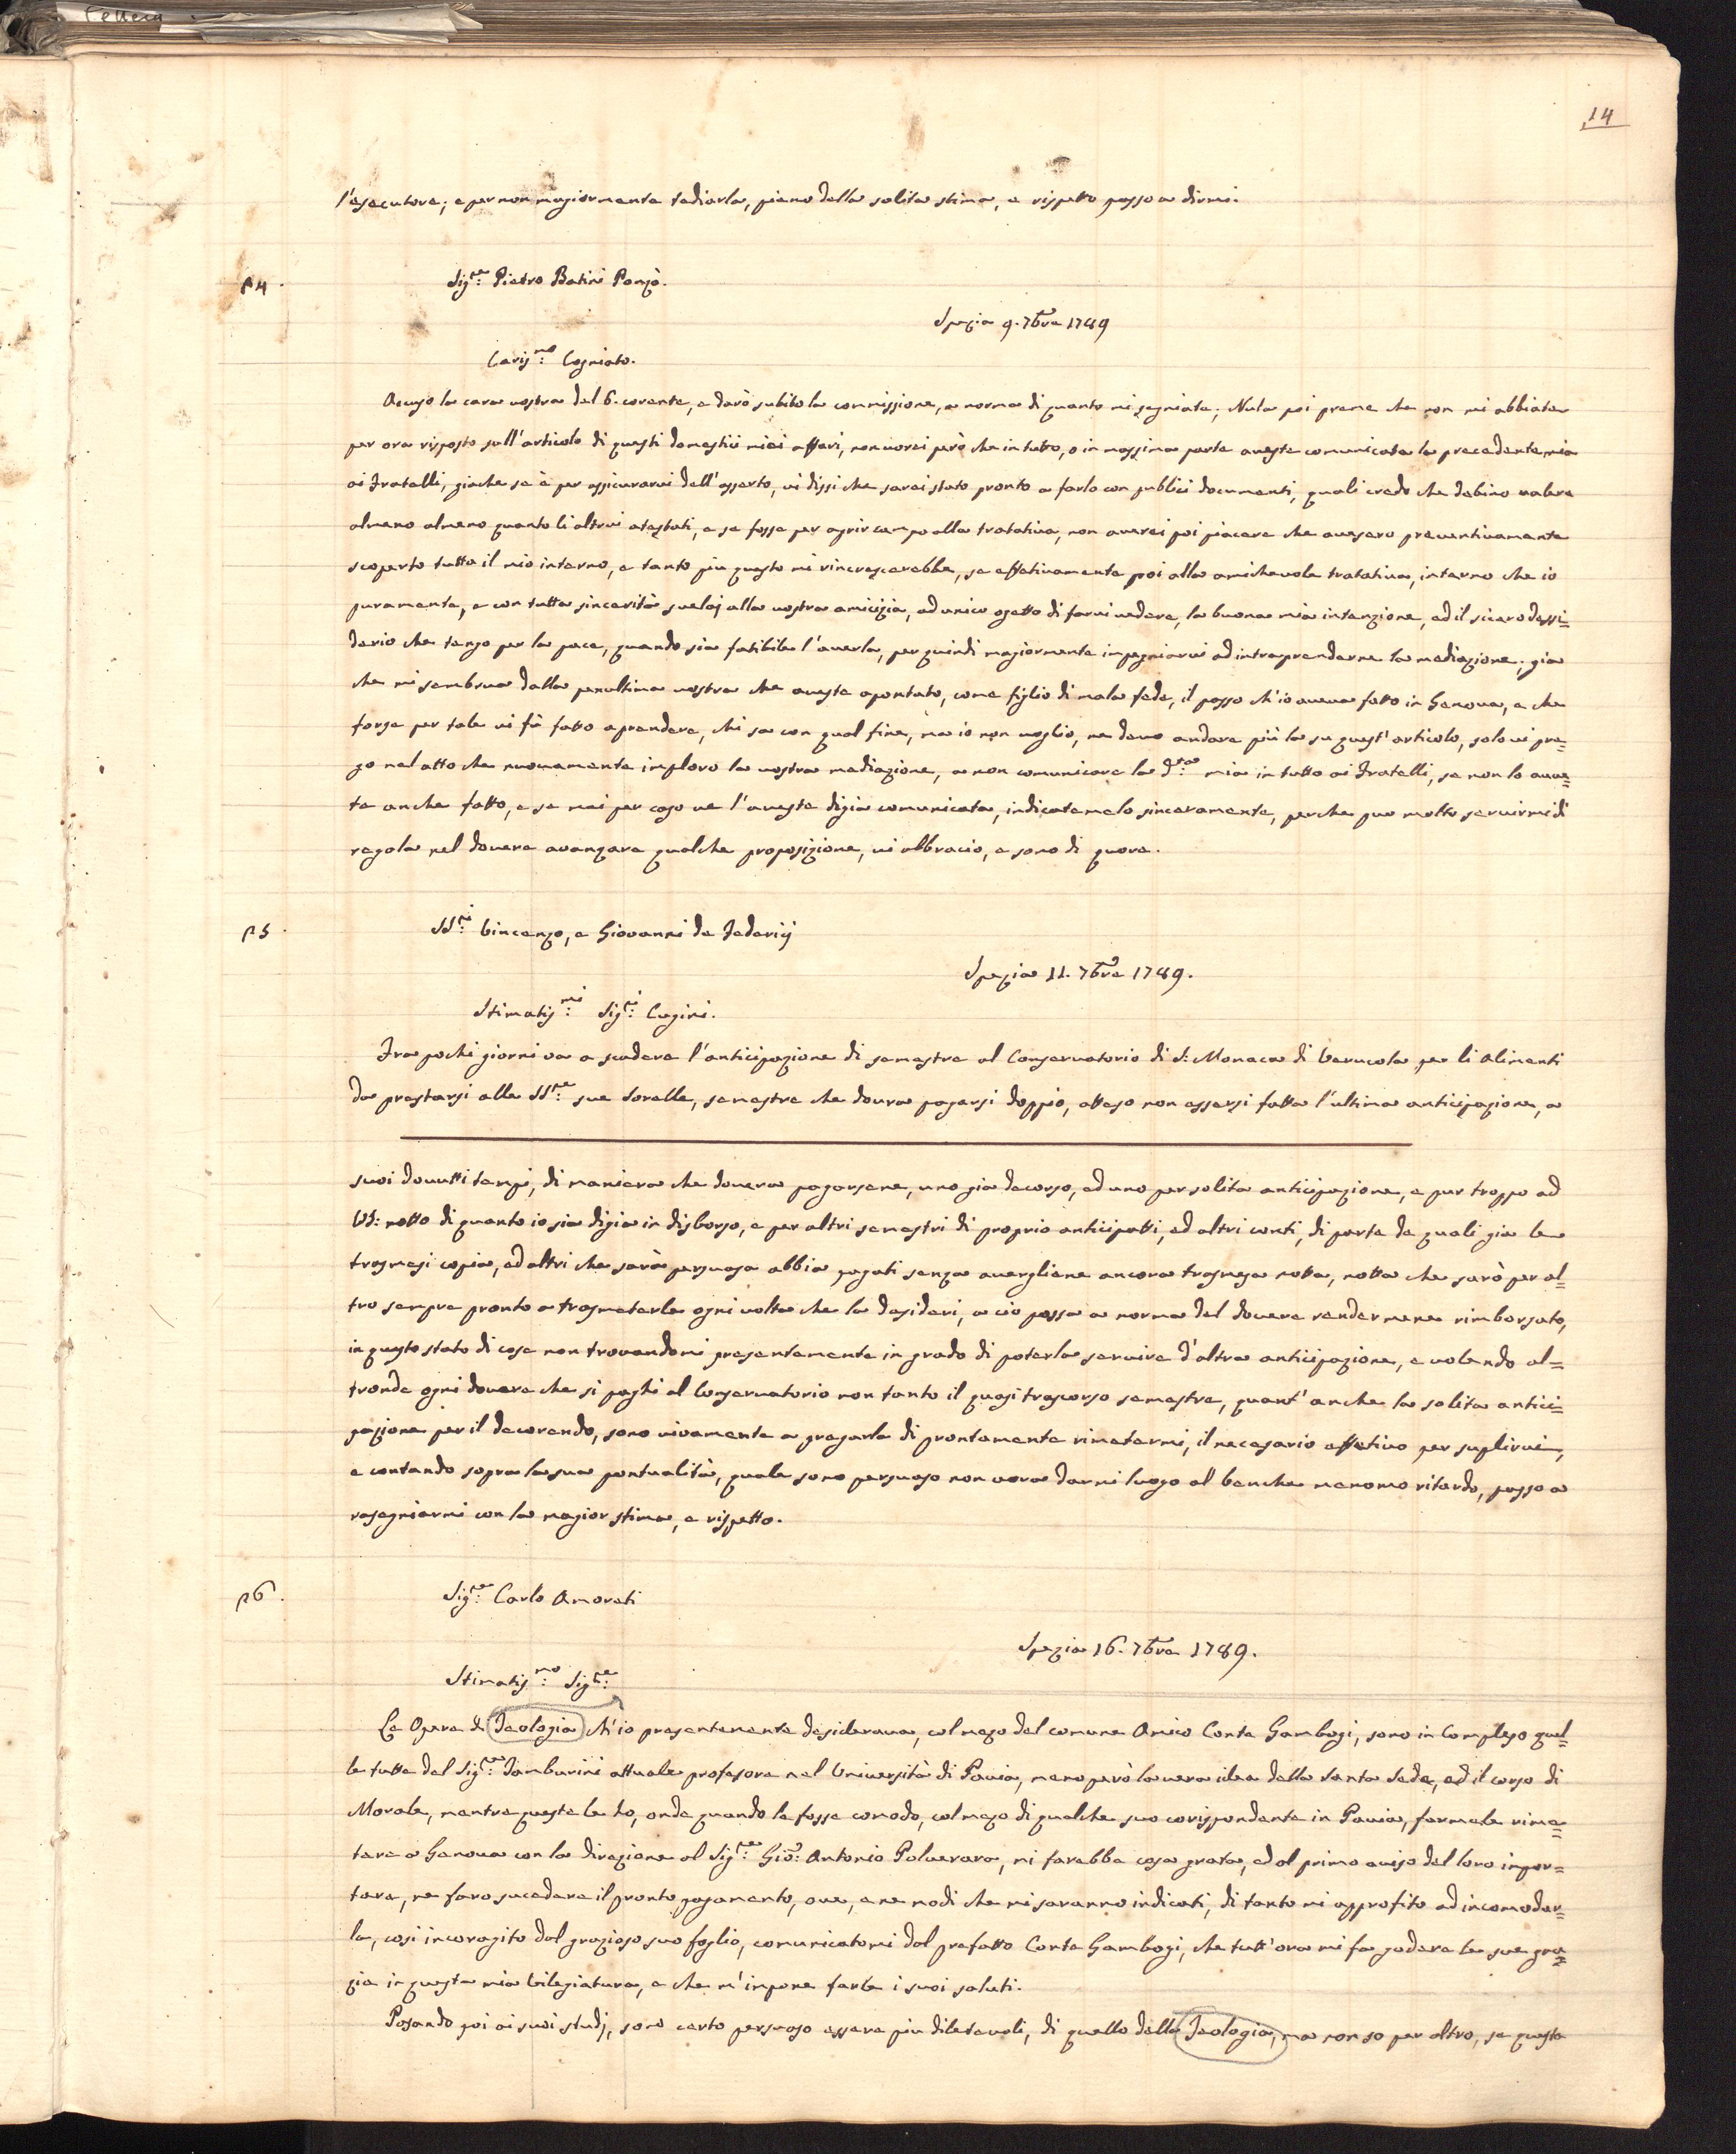 14
l'esecutore; e per non magiormente tediarla, pieno della solita stima, e rispetto passo a dirmi.
Sig.re Pietro Batini Ponzò.
Spezia 9. 7bre 1789
Cariss.mo Cogniato.
Acuso la cara vostra del 6. corente, e darò subito la comissione, a norma di quanto mi segniate; Nula poi preme che non mi abbiate
per ora risposto sull'articolo di questi domestici miei affari, non vorei però che in tutto, o in massima parte aveste comunicata la precedente mia
ai Fratelli, giache se è per assicurarvi dell'asserto, vi dissi che sarei stato pronto a farlo con publici documenti, quali credo che debino valere
almeno almeno quanto li altrui atestati, e se fosse per aprir campo alla tratativa, non averei poi piacere che avesero preventivamente
scoperto tutto il mio interno, e tanto piu questo mi rincrescerebbe, se effetivamente poi alla amichevole tratativa, interno che io
puramente, e con tutta sincerità svelaj alla vostra amicizia, ad unico ogetto di farvi vedere, la buona mia intenzione, ed il sicero dessi=
derio che tengo per la pace, quando sia fatibile l'averla, per quindi magiormente impegniarvi ad intraprenderne la mediazione; gia
che mi sembrua dalla penultima vostra che aveste apontato, come figlio di mala fede, il passo ch'io aveva fatto in Genova, e che
forse per tale vi fù fatto aprendere, chi sa con qual fine, ma io non voglio, ne devo andare più la su quest'articolo, solo vi pre=
go nel atto che nuovamente imploro la vostra mediazione, a non comunicare la d.ta mia in tutto ai Fratelli, se non lo ave=
te anche fatto, e se mai per caso ve l'aveste digia comunicata, indicatemelo sinceramente, perche puo molto servirmi di
regola nel dovere avanzare qualche proposizione, vi abbracio, e sono di quore.
SS.ri Vincenzo, e Giovanni de Federicj
Spezia 11. 7bre 1789.
Stimatis.mi Sig.ri Cugini.
Fra pochi giorni va a scadere l'anticipazione di semestre al Conservatorio di S: Monaca di Verucola per li Alimenti
da prestarsi alle SS.re sue Sorelle, semestre che dovra pagarsi doppio, atteso non essersi fatta l'ultima anticipazione, a
suoi dovutti tempi, di maniera che dovera pagarsene, uno gia decorso, ed uno per solita anticipazione, e pur troppo ad
VS: notto di quanto io sia digia in disborso, e per altri semestri di proprio anticipatti, ed altri conti, di parte de quali gia le
trasmesi copia, ed altri che sarà persuasa abbia pagati senza avergliene ancora trasmesa notta, notta che sarò per al=
tro sempre pronto a trasmeterle ogni volta che la desideri, a ciò possa a norma del dovere rendermene rimborsato,
in questo stato di cose non trovandomi presentemente in grado di poterla servire d'altra anticipazione, e volendo al=
tronde ogni dovere che si paghi al Conservatorio non tanto il quasi trascorso semestre, quant'anche la solita antici=
pazione per il decorendo, sono vivamente a pregarla di prontamente rimetermi, il necesario effetivo per suplirvi,
e contando sopra la sua pontualità, quale sono persuaso non vora darmi luogo al benche menomo ritardo, passo a
rasegniarmi con la magior stima, e rispetto.
Sig.re Carlo Amorati
Spezia 16. 7bre 1789.
Stimatis.mo Sig.re
Le Opere di Teologia ch'io presentemente desiderava, col mezo del comune Amico Conte Gambogi, sono in Complesso quel=
le tutte del Sig.re Tamburini attuale profesore nel Università di Pavia, meno però la vera idea della Santa Sede, ed il corso di
Morale, mentre queste le ho, onde quando le fosse comodo, col mezo di qualche suo corispondente in Pavia, farmele rime=
tere a Genova con la direzione al Sig.re Gio: Antonio Polverara, mi farebbe cosa grata, ed al primo aviso del loro impor=
tare, ne faro sucedere il pronto pagamento, ove, e ne modi che mi saranno indicati, di tanto mi approfito ad incomodar=
la, cosi incoragito dal grazioso suo foglio, comunicatomi dal prefatto Conte Gambogi, che tutt'ora mi fa godere le sue gra=
zie in questa mia Vilegiatura, e che m'impone farle i suoi saluti.
Pasando poi ai suoi studj, sono certo persuaso essere piu diletevoli, di quello della Teologia, ma non so per altro, se questa